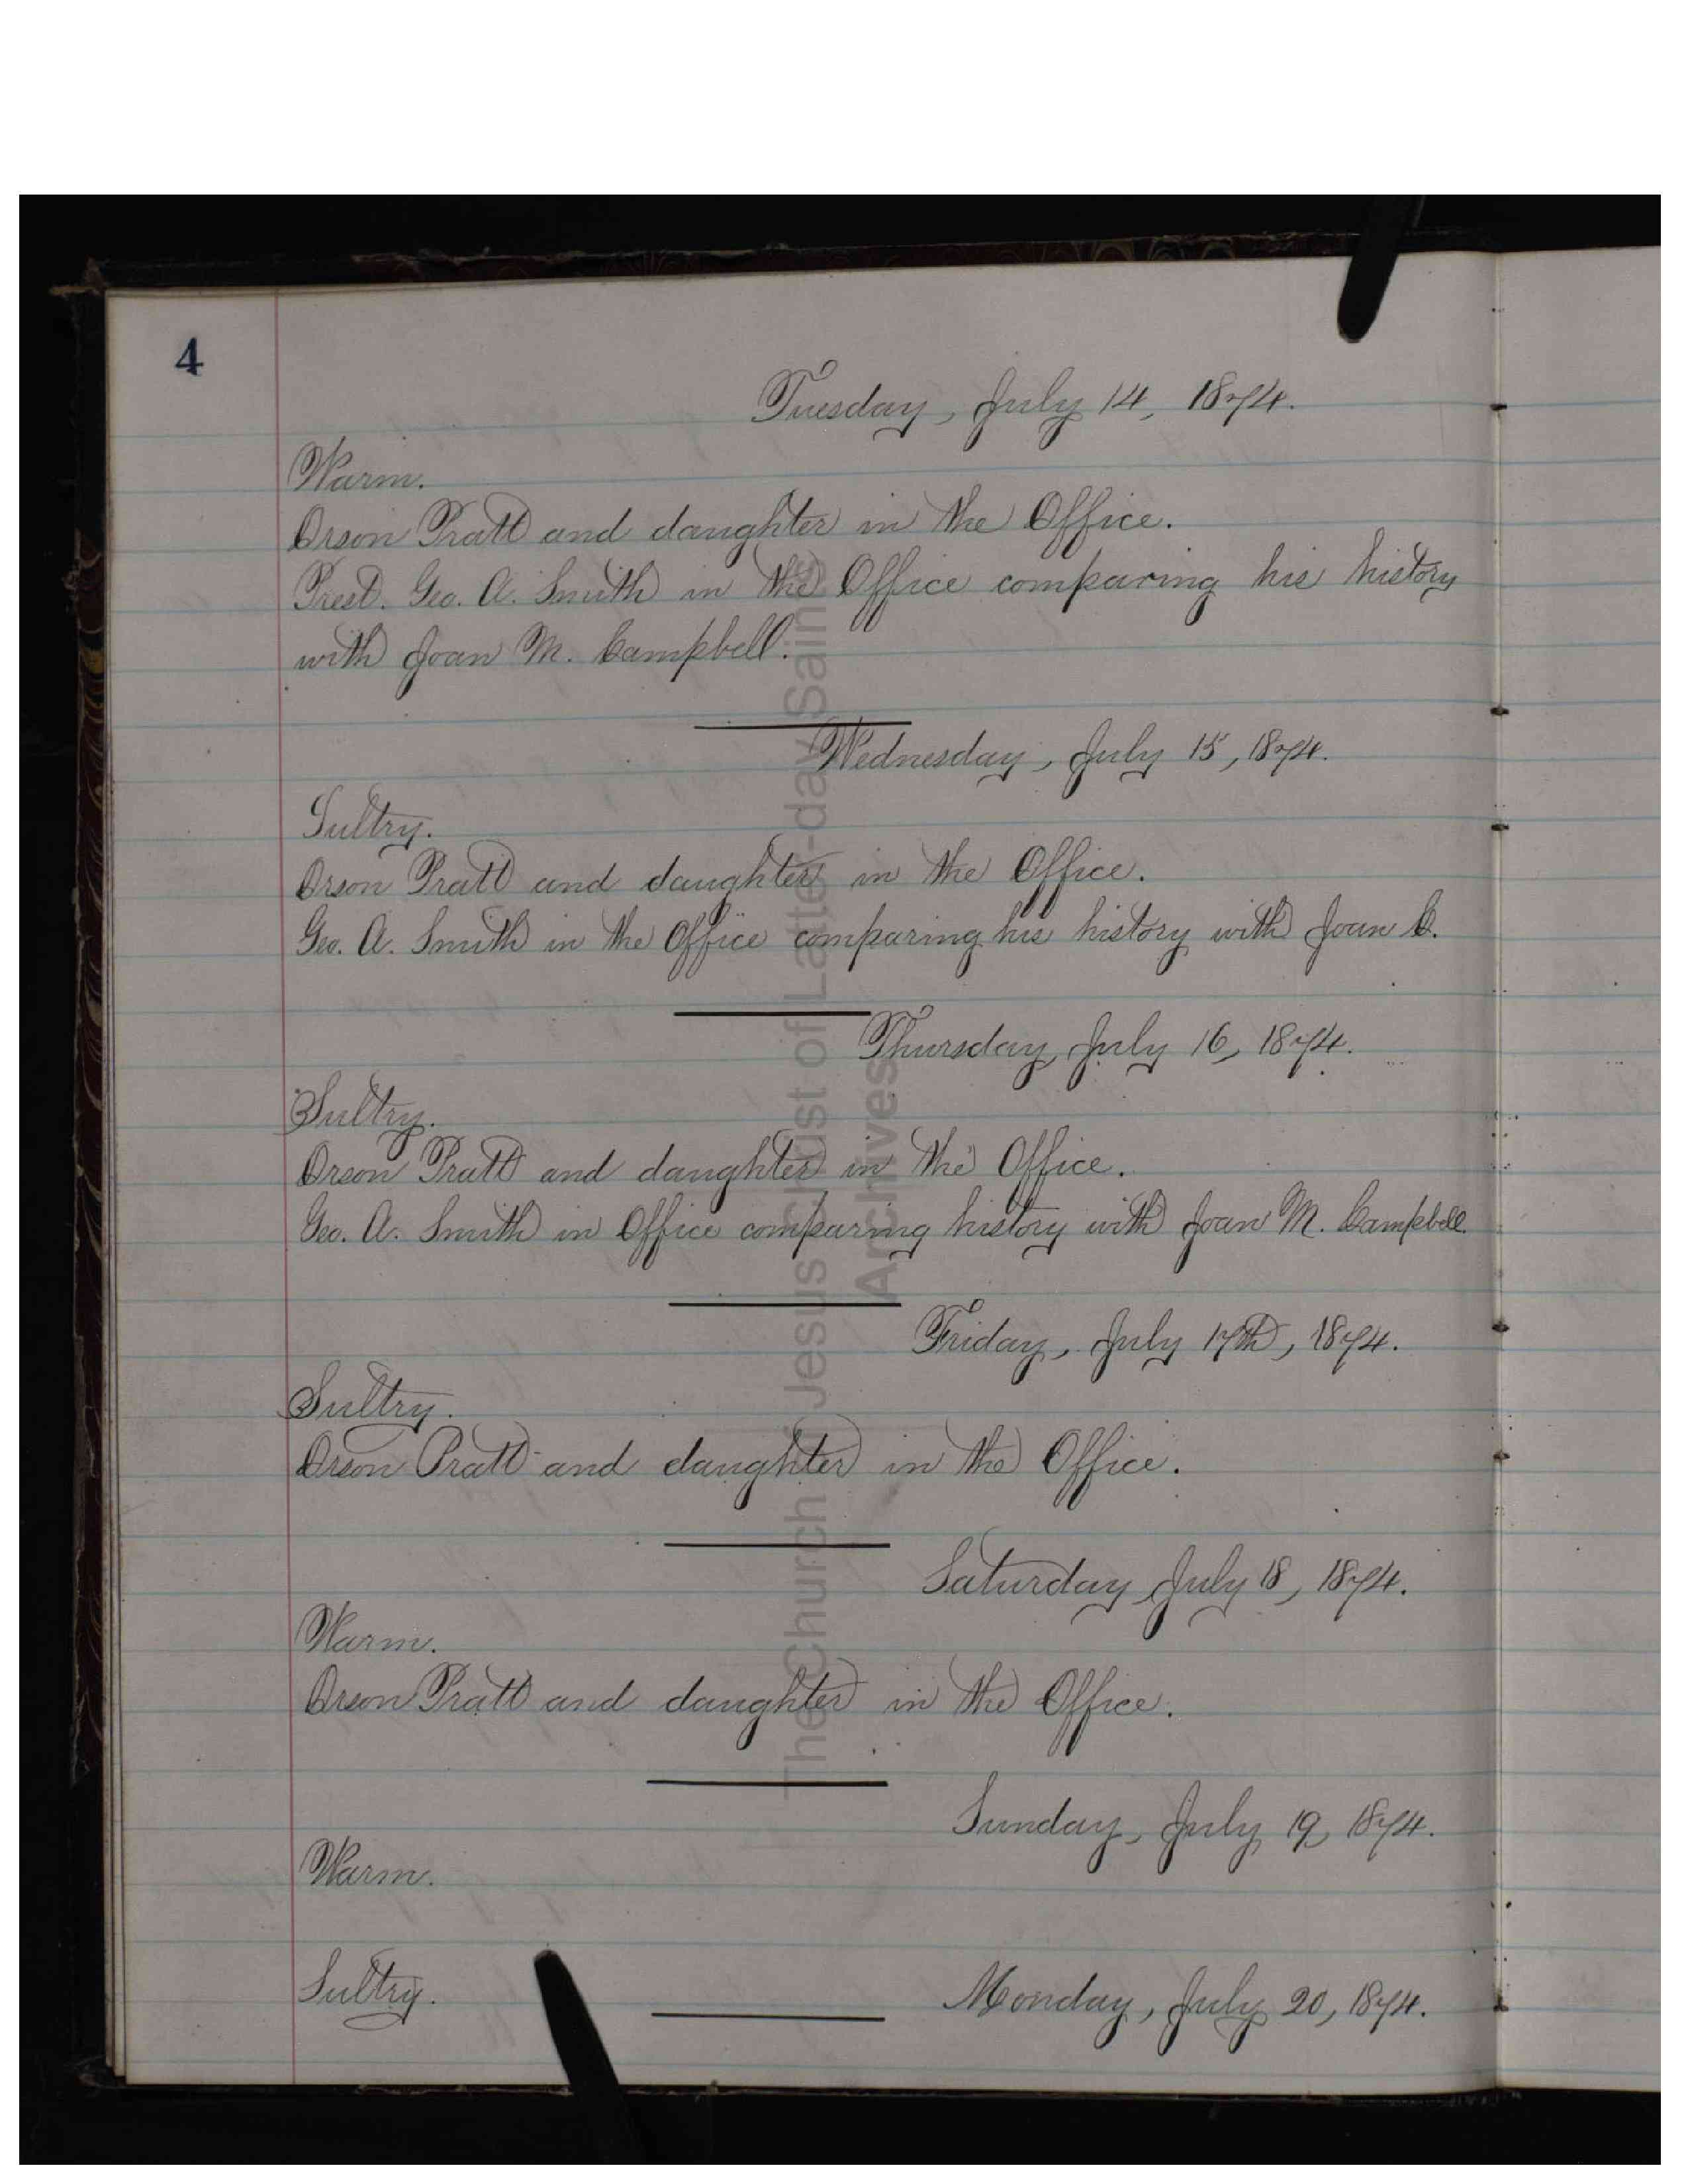 4
Tuesday, July 14, 1874.
Warm.
Orson Pratt and daughter in the Office.
Prest. Geo. A. Smith in the Office comparing his history
with Joan M. Campbell.
Wednesday, July 15, 1874.
Sultry.
Orson Pratt and daughter in the Office.
Geo. A. Smith in the Office comparing his history with Joan C.
Thursday, July 16, 1874.
Sultry.
Orson Pratt and daughter in the Office.
Geo. A. Smith in Office comparing history with Joan M. Campbell.
Friday, July 17th, 1874.
Sultry.
Orson Pratt and daughter in the Office.
Saturday, July 18, 1874.
Warm.
Orson Pratt and daughter in the Office.
Sunday, July 19, 1874.
Warm.
Sultry. Monday, July 20, 1874.
The Church of Jesus Christ of Latter-day Saints
Archives